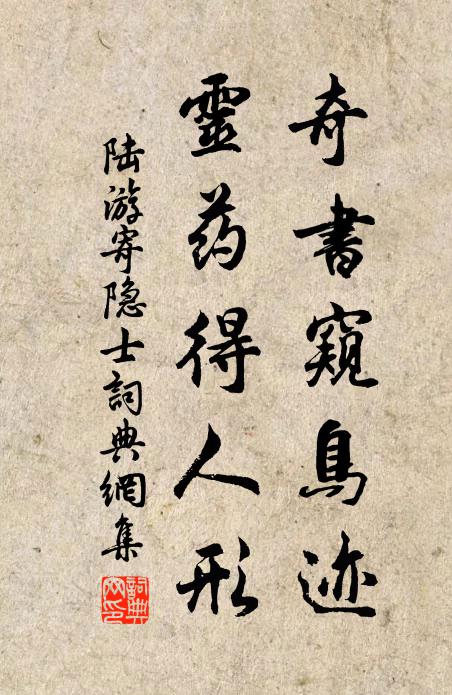 奇書窺鳥迹
靈药得人形
陆游寄隐士詞典網集
詞典网印